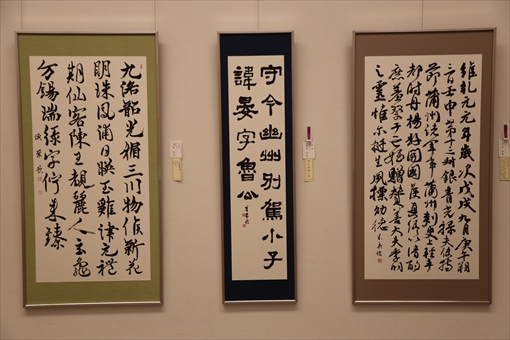 維乾元元年歲次戊戌九月庚午朔
三日壬申第十三叔銀青光祿夫使持
節蒲州諸軍事蒲州刺史上輕車
都尉丹楊縣開國侯真卿以清酌
庶羞祭于亡姪贈贊善大夫季明
之靈惟爾挺生夙標幼德
守令幽州別駕小子
諱晏字魯公
九洛韶光媚三川物候新花
明珠鳳浦日映玉雞津元禮
期仙客陳王覿麗人玄龜
方錫瑞綠字佇来臻